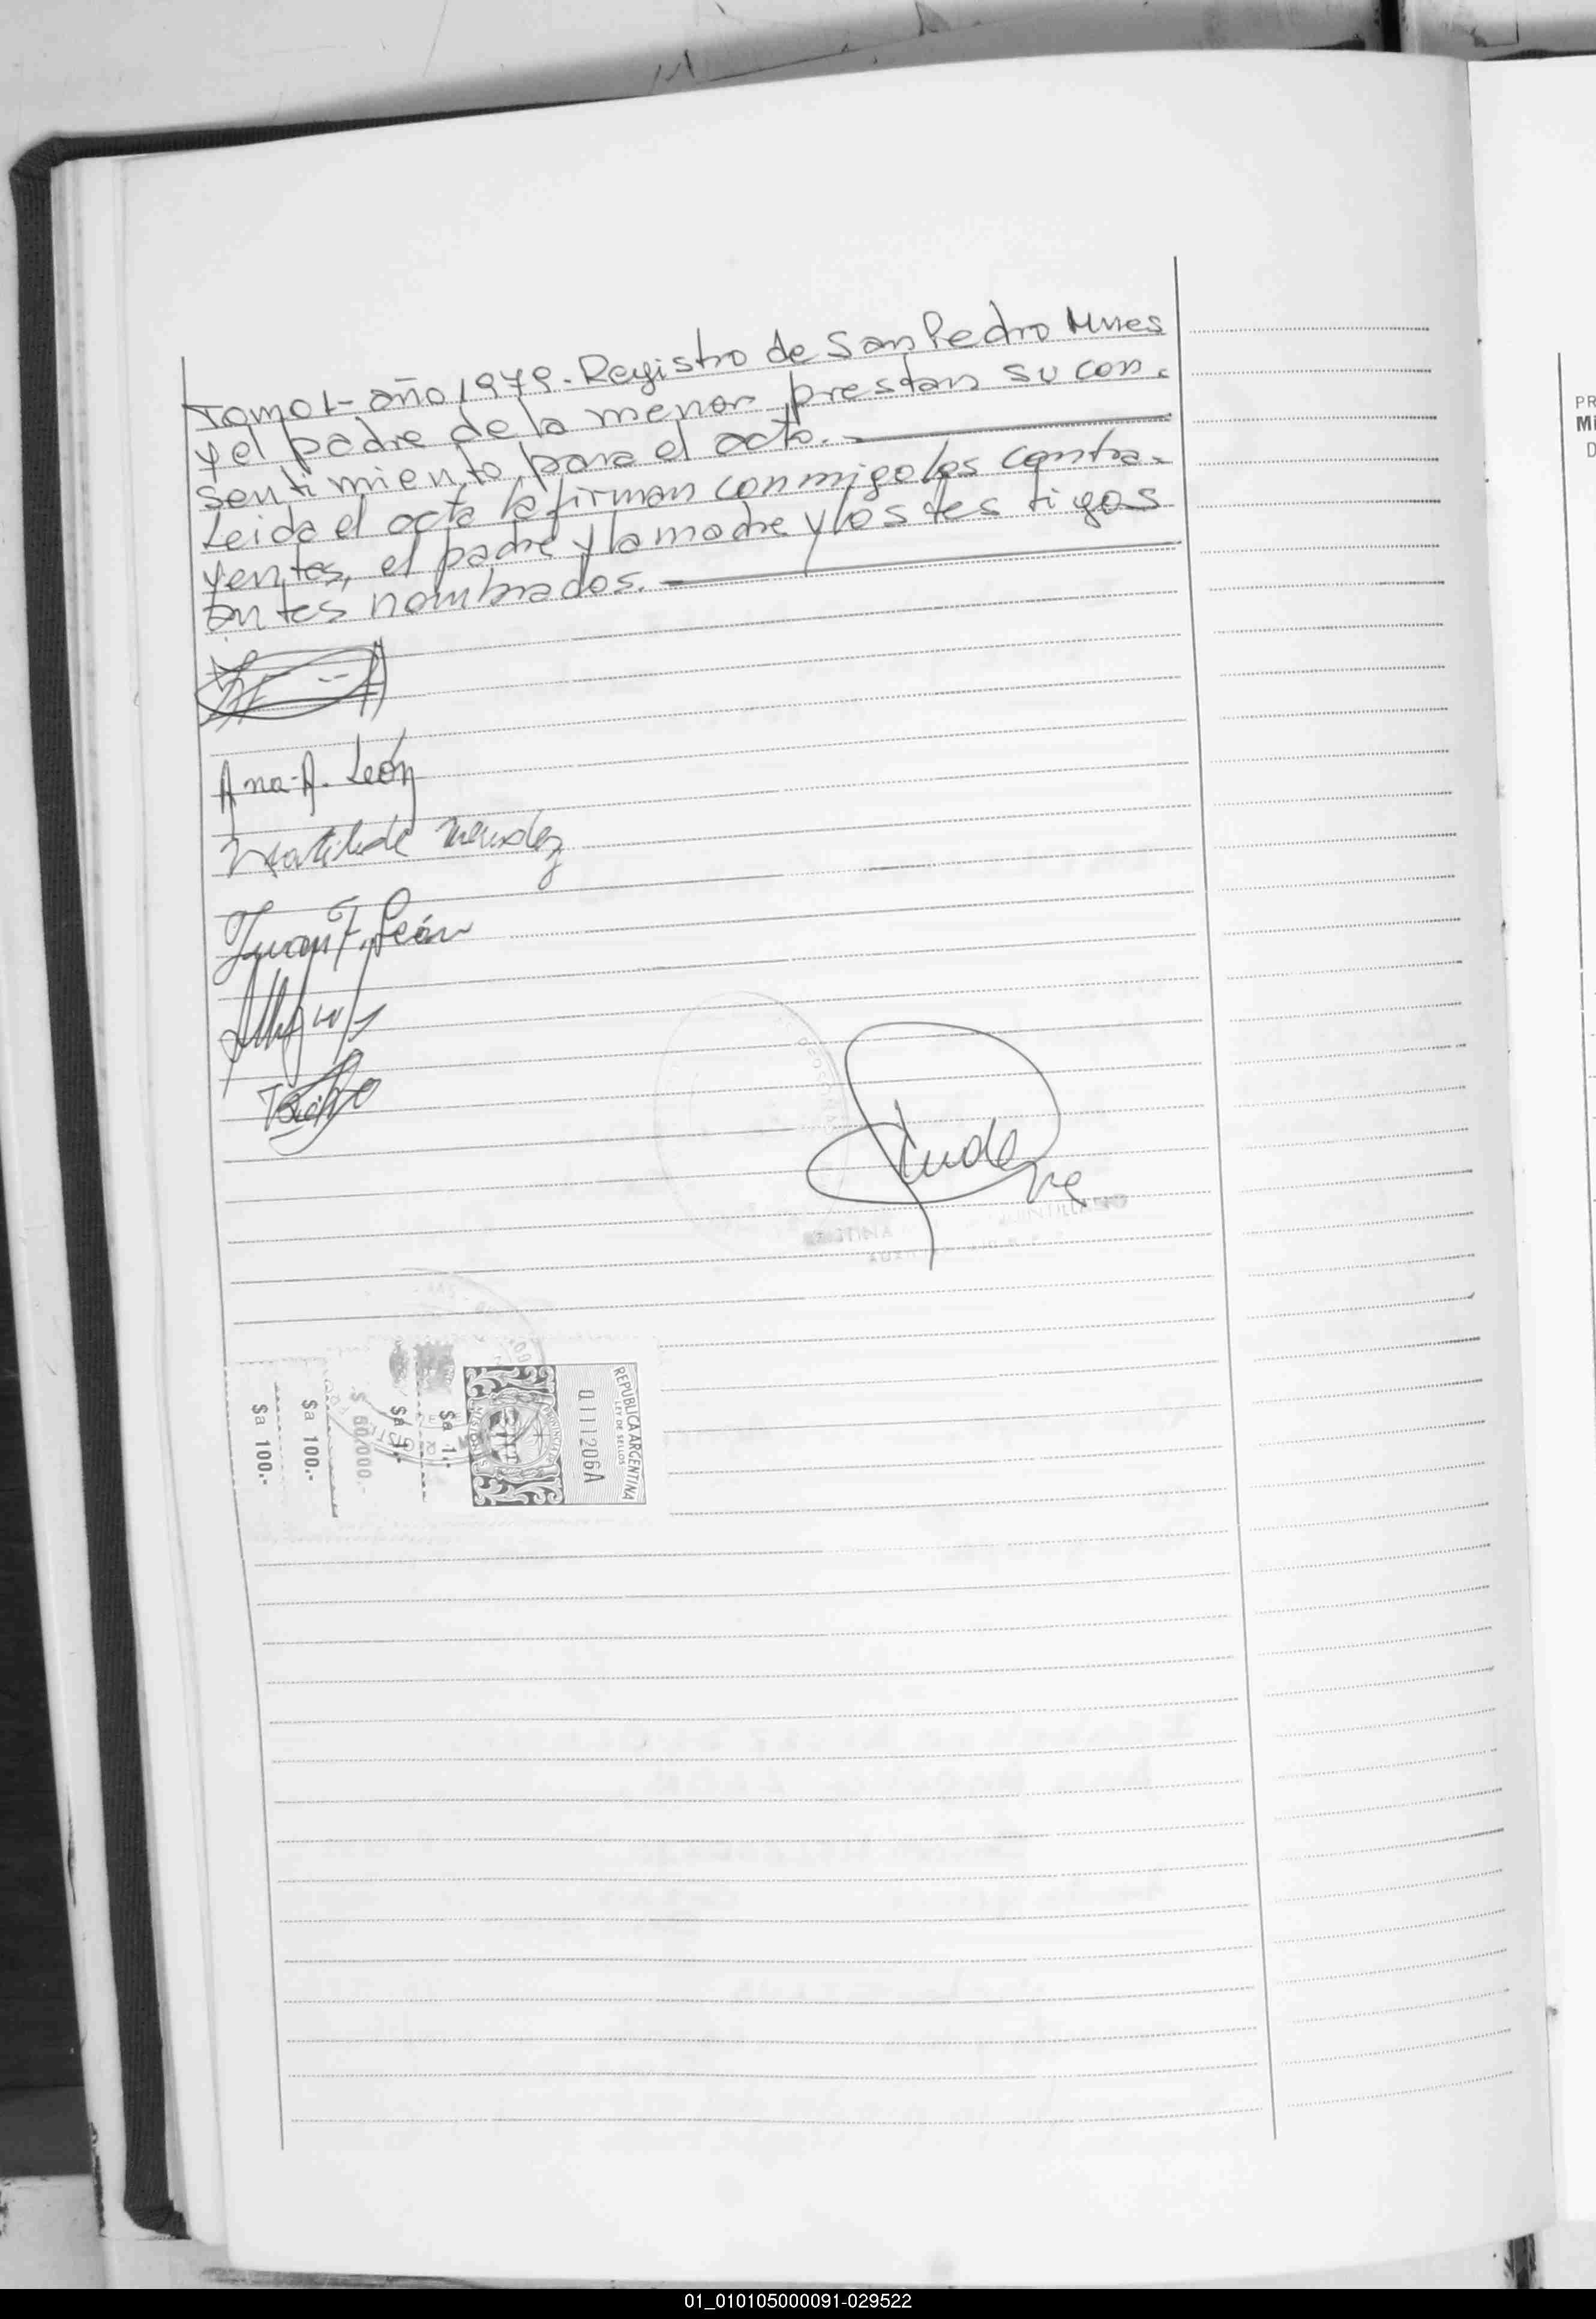 Tomo 1- año 1979.- Registro de San Pedro Mnes
y el padre de la menor prestan su con-
sentimiento para el acto.-
Leida el acta la firman conmigo los contra-
yentes, el padre y la madre y los testigos
antes nombrados.-
Ana A. León
Matilde Mendez
Juan F. León
REPUBLICA ARGENTINA
LEY DE SELLOS
0111206A
MISIONES
$a 1.-
$a 1.-
$ 60.000.-
$a 100.-
$a 100.-
PR
Mi
D
01_010105000091-029522